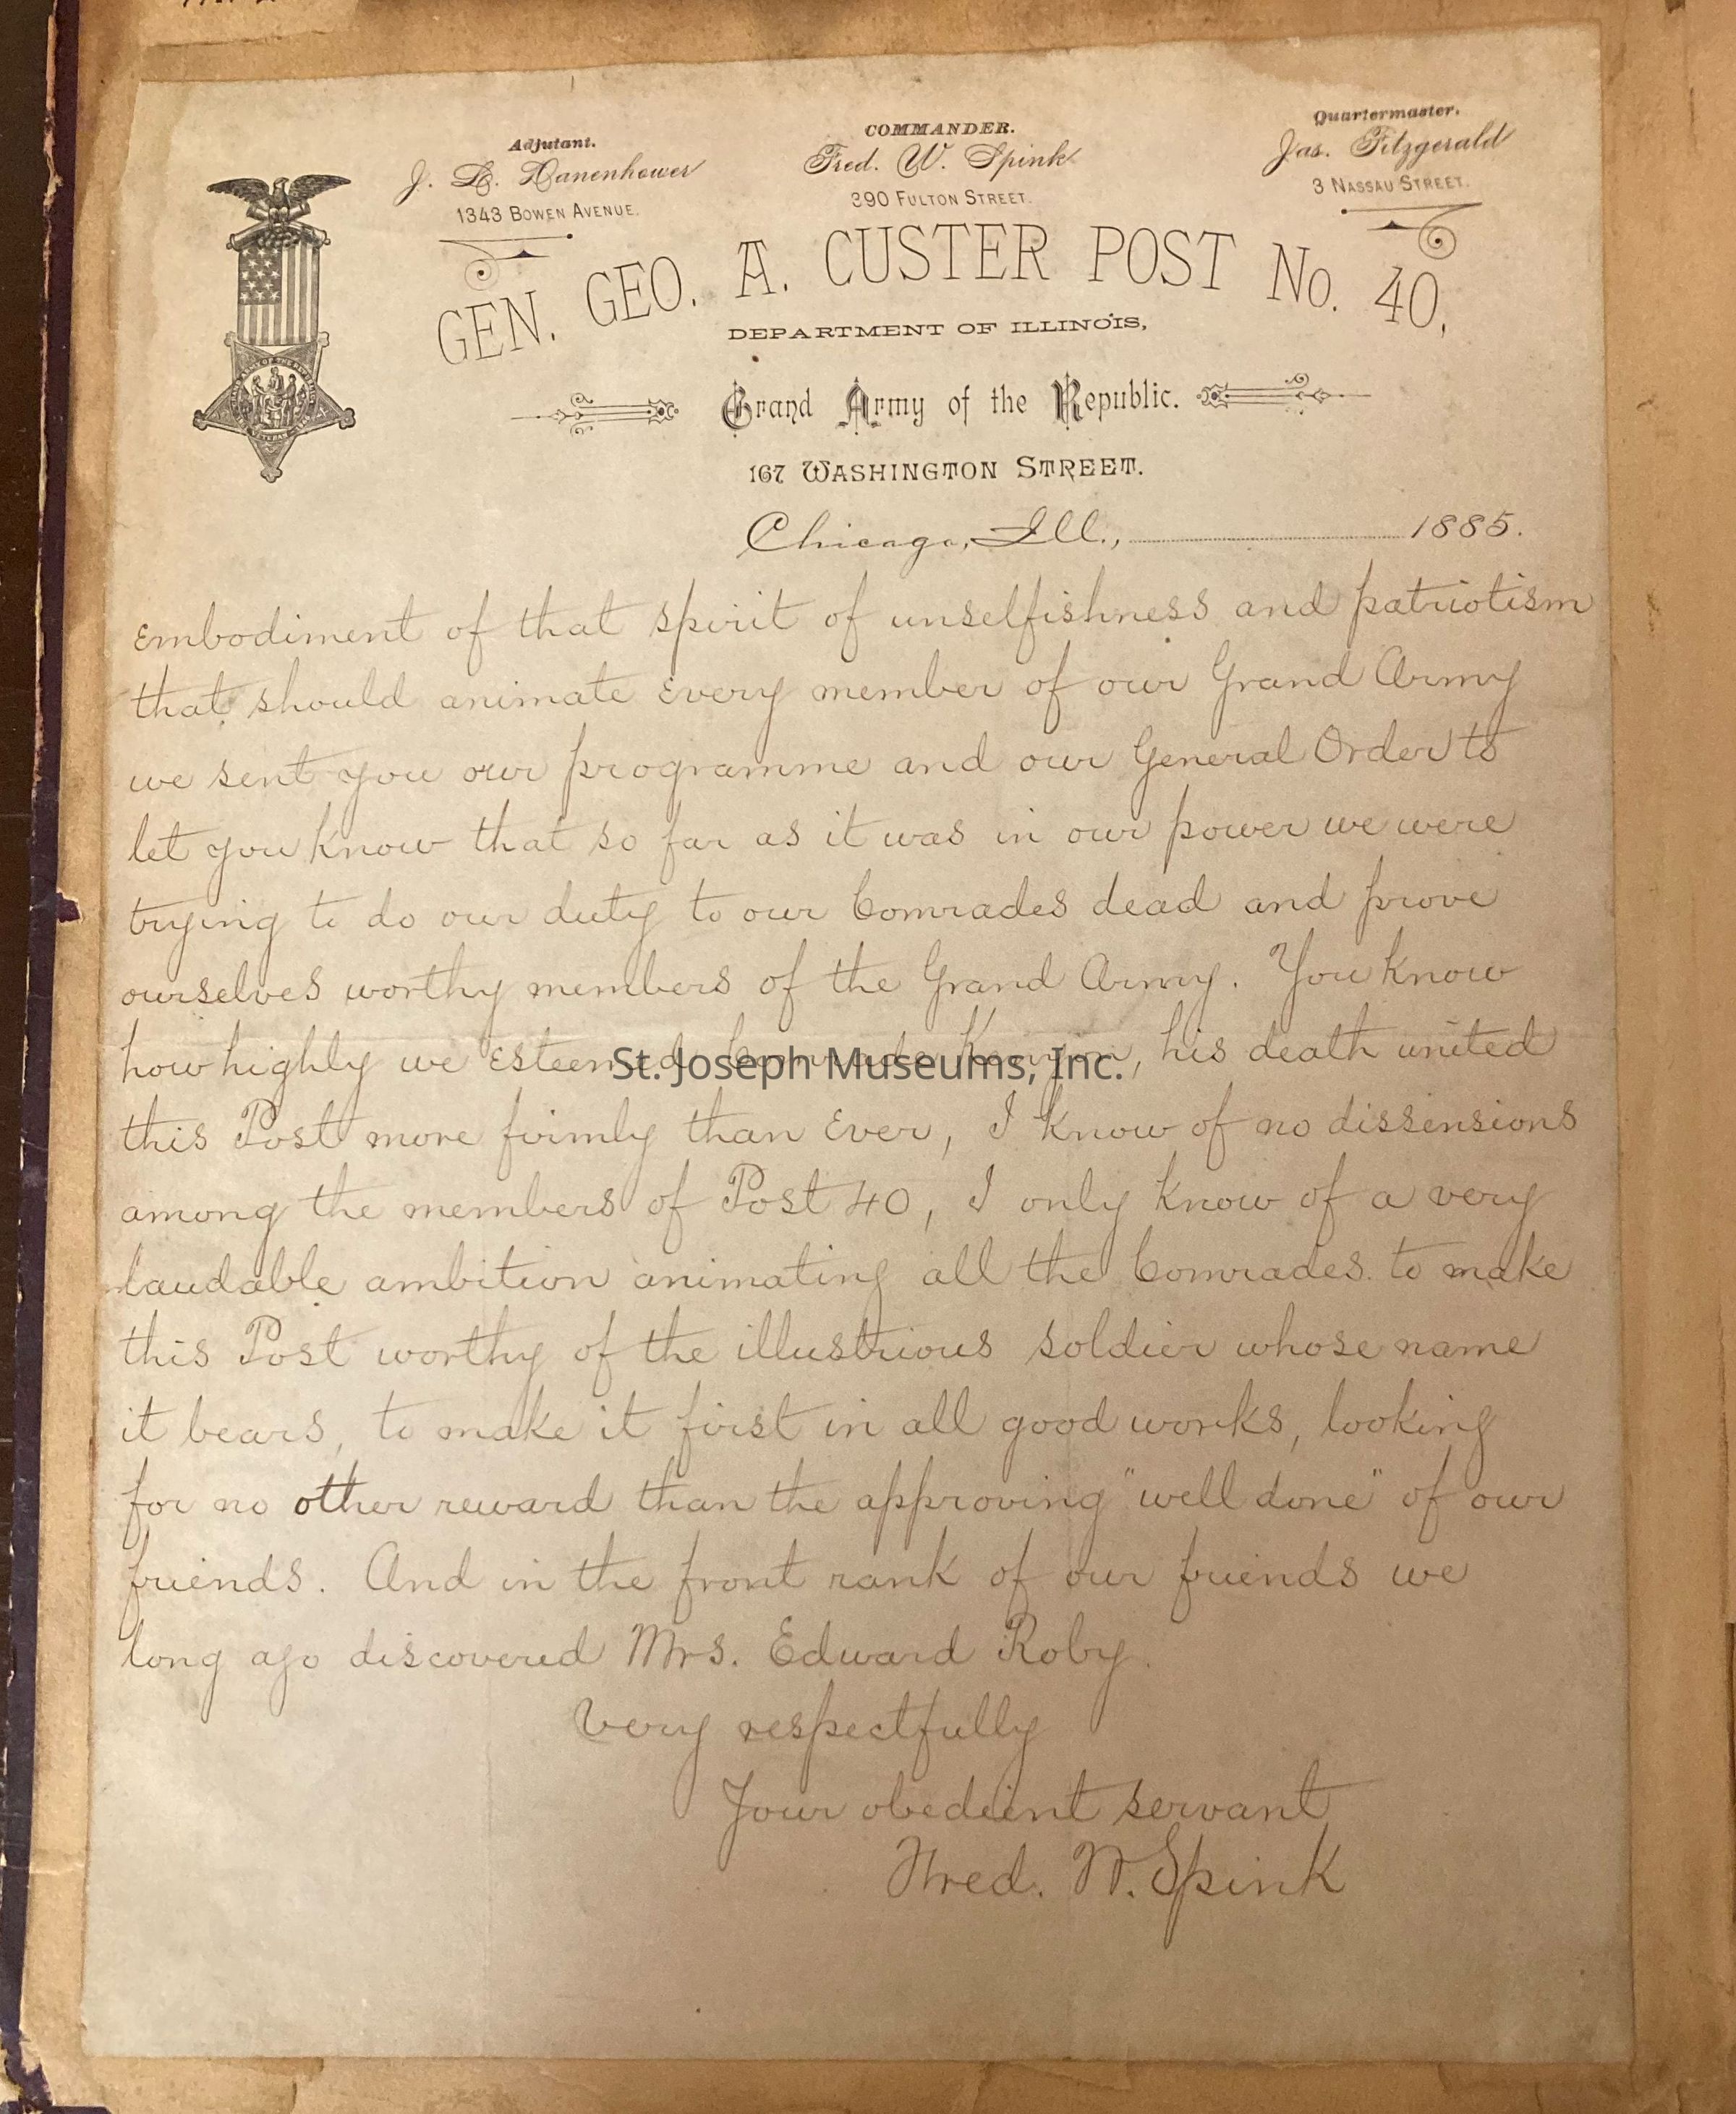 Adjutant.
J. L. Danenhower
1343 BOWEN AVENUE.
COMMANDER.
Fred. W. Spink
390 FULTON STREET.
Quartermaster.
Jas. Fitzgerald
3 NASSAU STREET.
GEN. GEO. A. CUSTER POST No. 40,
DEPARTMENT OF ILLINOIS,
Grand Army of the Republic.
167 WASHINGTON STREET.
Chicago, Ill., 1885.
Embodiment of that spirit of unselfishness and patriotism
that should animate Every member of our Grand Army
we sent you our programme and our General Order to
let you know that so far as it was in our power we were
trying to do our duty to our Comrades dead and prove
ourselves worthy members of the Grand Army. You know
how highly we Esteemed Comrade Kenyon, his death united
this Post more firmly than Ever, I know of no dissensions
among the members of Post 40, I only know of a very
laudable ambition animating all the Comrades. to make
this Post worthy of the illustrious soldier whose name
it bears, to make it first in all good works, looking
for no other reward than the approving "well done" of our
friends. And in the front rank of our friends we
long ago discovered Mrs. Edward Roby.
Very respectfully
Your obedient servant
Fred. W. Spink
St. Joseph Museums, Inc.